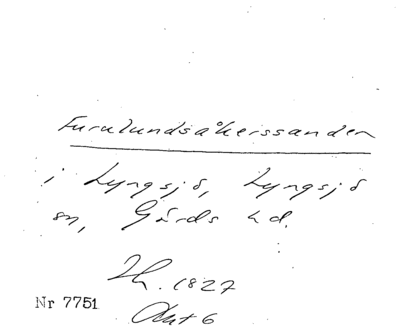 Furulundsåkerssanden
i Lyngsjö, Lyngsjö
sn, Gärds hd.
Lh. 1827
Nr 7751
Akt 6